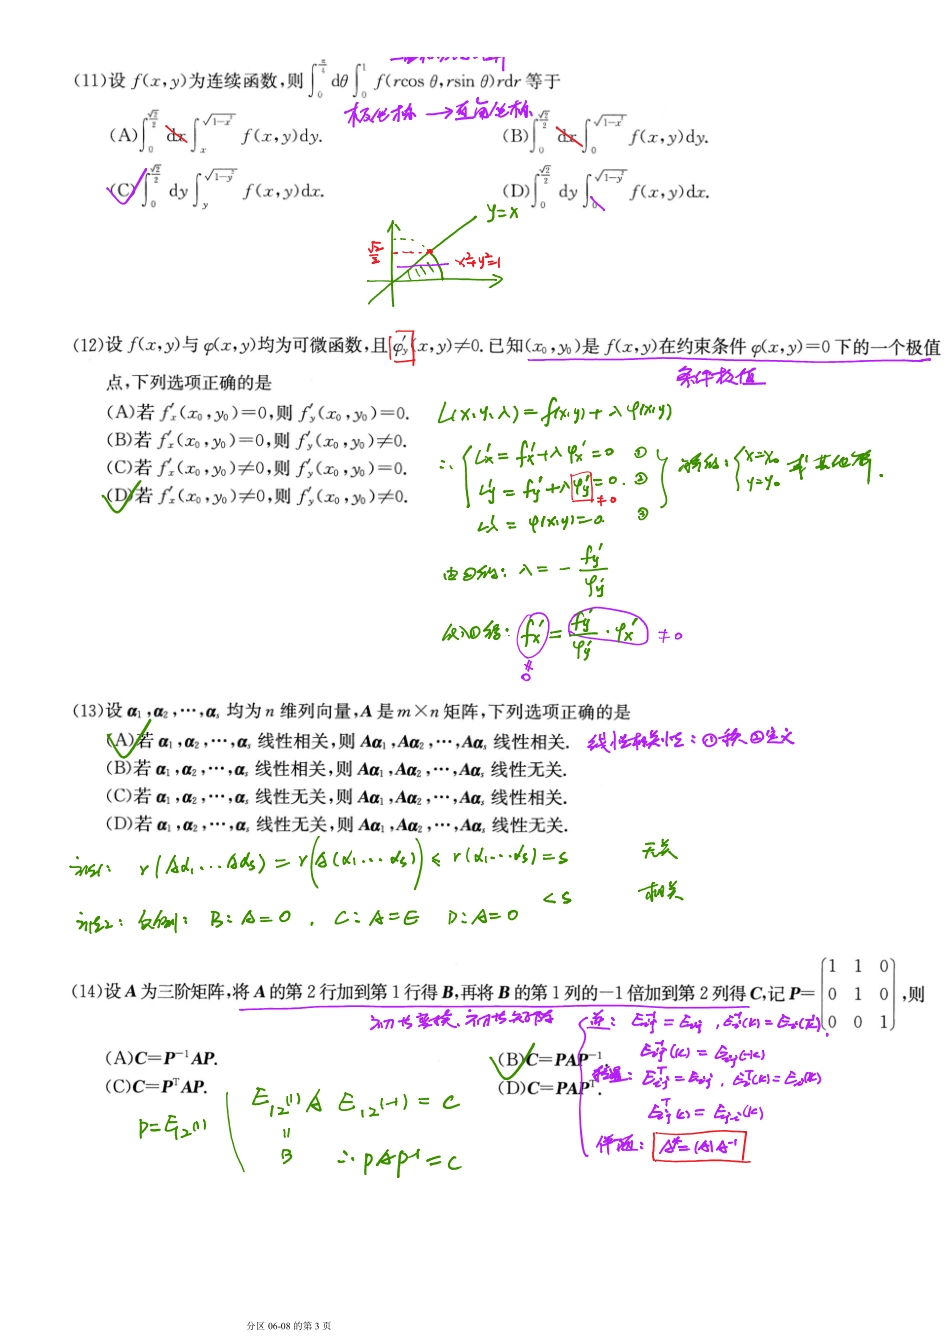 (11)设 f(x,y)为连续函数,则∫₀^{π/4} dθ∫₀¹ f(rcos θ,rsin θ)rdr 等于
极坐标 → 直角坐标
(A)∫₀^{√2/2} dx∫ₓ^{√(1-x²)} f(x,y)dy. (B)∫₀^{√2/2} dx∫₀^{√(1-x²)} f(x,y)dy.
(C)∫₀^{√2/2} dy∫_y^{√(1-y²)} f(x,y)dx. (D)∫₀^{√2/2} dy∫₀^{√(1-y²)} f(x,y)dx.
y=x
√2/2
x²+y²=1
(12)设 f(x,y)与 φ(x,y)均为可微函数,且 φ′_y(x,y)≠0.已知(x₀,y₀)是 f(x,y)在约束条件 φ(x,y)=0 下的一个极值
点,下列选项正确的是
条件极值
(A)若 f′ₓ(x₀,y₀)=0,则 f′_y(x₀,y₀)=0.
(B)若 f′ₓ(x₀,y₀)=0,则 f′_y(x₀,y₀)≠0.
(C)若 f′ₓ(x₀,y₀)≠0,则 f′_y(x₀,y₀)=0.
(D)若 f′ₓ(x₀,y₀)≠0,则 f′_y(x₀,y₀)≠0.
L(x,y,λ)=f(x,y)+λφ(x,y)
∴ L′x = f′x+λφ′x=0 ①
L′y = f′y+λφ′y=0. ②
≠0
L′λ = φ(x,y)=0. ③
x=x₀
y=y₀
由②得: λ = - f′y/φ′y
代入①得: f′x = f′y/φ′y · φ′x ≠0
≠0
(13)设 α₁,α₂,⋯,αₛ 均为 n 维列向量,A 是 m×n 矩阵,下列选项正确的是
(A)若 α₁,α₂,⋯,αₛ 线性相关,则 Aα₁,Aα₂,⋯,Aαₛ 线性相关.
线性相关性: ①秩 ②定义
(B)若 α₁,α₂,⋯,αₛ 线性相关,则 Aα₁,Aα₂,⋯,Aαₛ 线性无关.
(C)若 α₁,α₂,⋯,αₛ 线性无关,则 Aα₁,Aα₂,⋯,Aαₛ 线性相关.
(D)若 α₁,α₂,⋯,αₛ 线性无关,则 Aα₁,Aα₂,⋯,Aαₛ 线性无关.
方法1: r(Aα₁...Aαs) = r(A(α₁...αs)) ≤ r(α₁...αs) = s 无关
<s 相关
方法2: 反例: B: A=0 , C: A=E D: A=0
(14)设 A 为三阶矩阵,将 A 的第 2 行加到第 1 行得 B,再将 B 的第 1 列的−1 倍加到第 2 列得 C,记 P=(1 1 0; 0 1 0; 0 0 1),则
初等变换、初等矩阵
(A)C=P⁻¹AP. (B)C=PAP⁻¹.
(C)C=PᵀAP. (D)C=PAPᵀ.
P=E₁₂(1)
E₁₂(1) A E₁₂(-1) = C
B
∴ PAP⁻¹ = C
伴随: A*=|A|A⁻¹
分区 06-08 的第 3 页